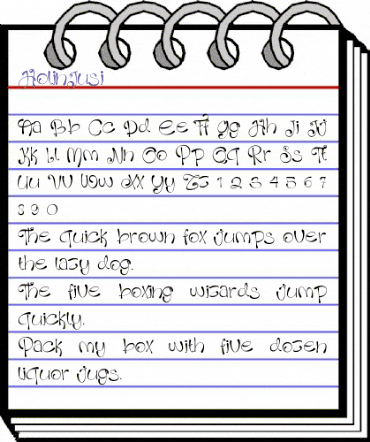 Kolinlusi
Aa Bb Cc Dd Ee Ff Gg Hh Ii Jj
Kk Ll Mm Nn Oo Pp Qq Rr Ss Tt
Uu Vv Ww Xx Yy Zz 1 2 3 4 5 6 7
8 9 0
The quick brown fox jumps over
the lazy dog.
The five boxing wizards jump
quickly.
Pack my box with five dozen
liquor jugs.